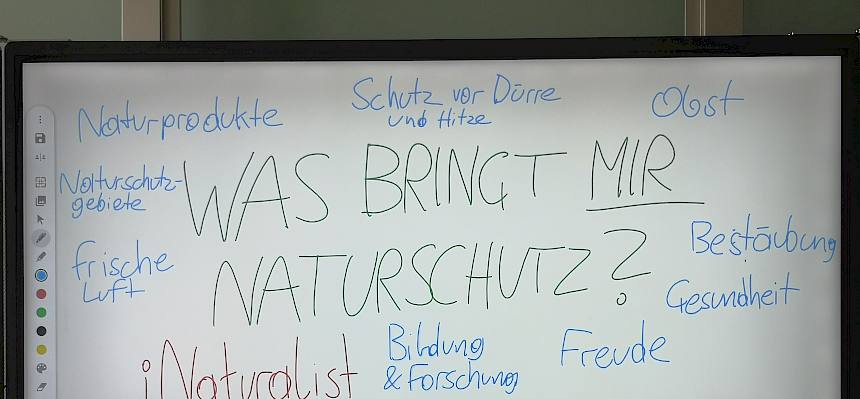 Naturprodukte
Schutz vor Dürre
und Hitze
Obst
Naturschutz-
gebiete
WAS BRINGT MIR
NATURSCHUTZ?
frische
Luft
Bestäubung
Gesundheit
iNaturalist
Bildung
& Forschung
Freude